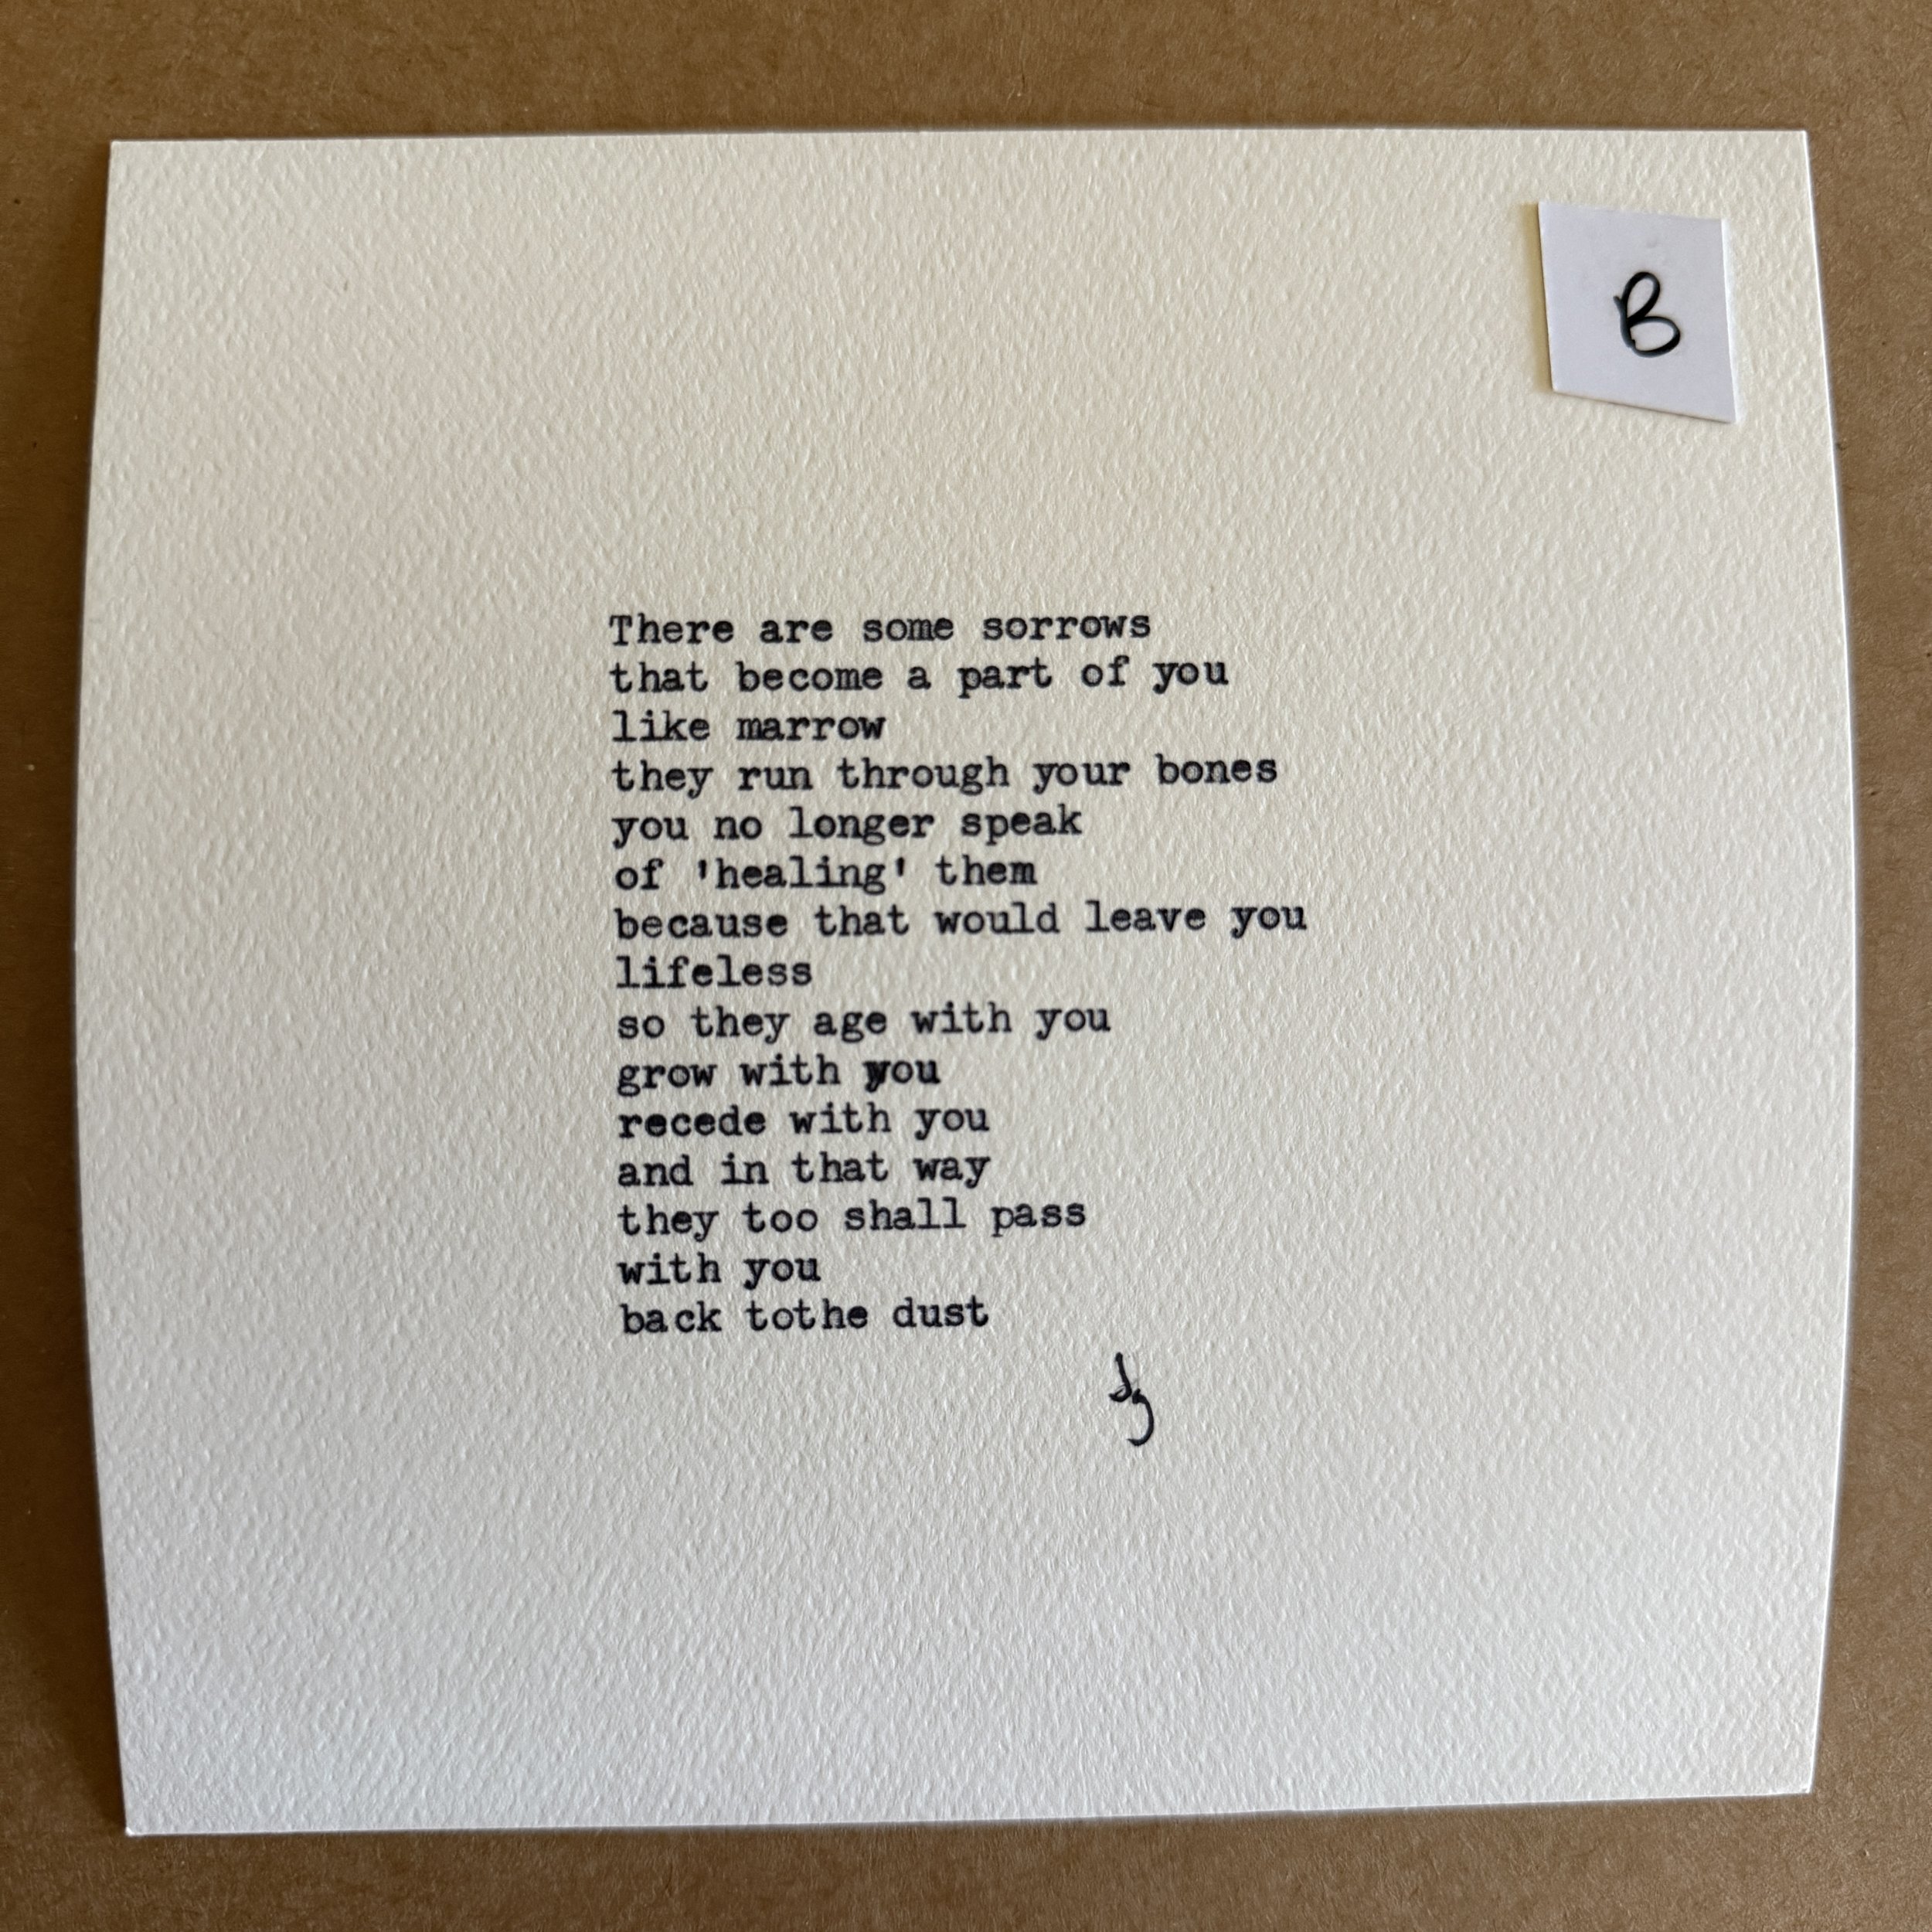 B
There are some sorrows
that become a part of you
like marrow
they run through your bones
you no longer speak
of 'healing' them
because that would leave you
lifeless
so they age with you
grow with you
recede with you
and in that way
they too shall pass
with you
back tothe dust